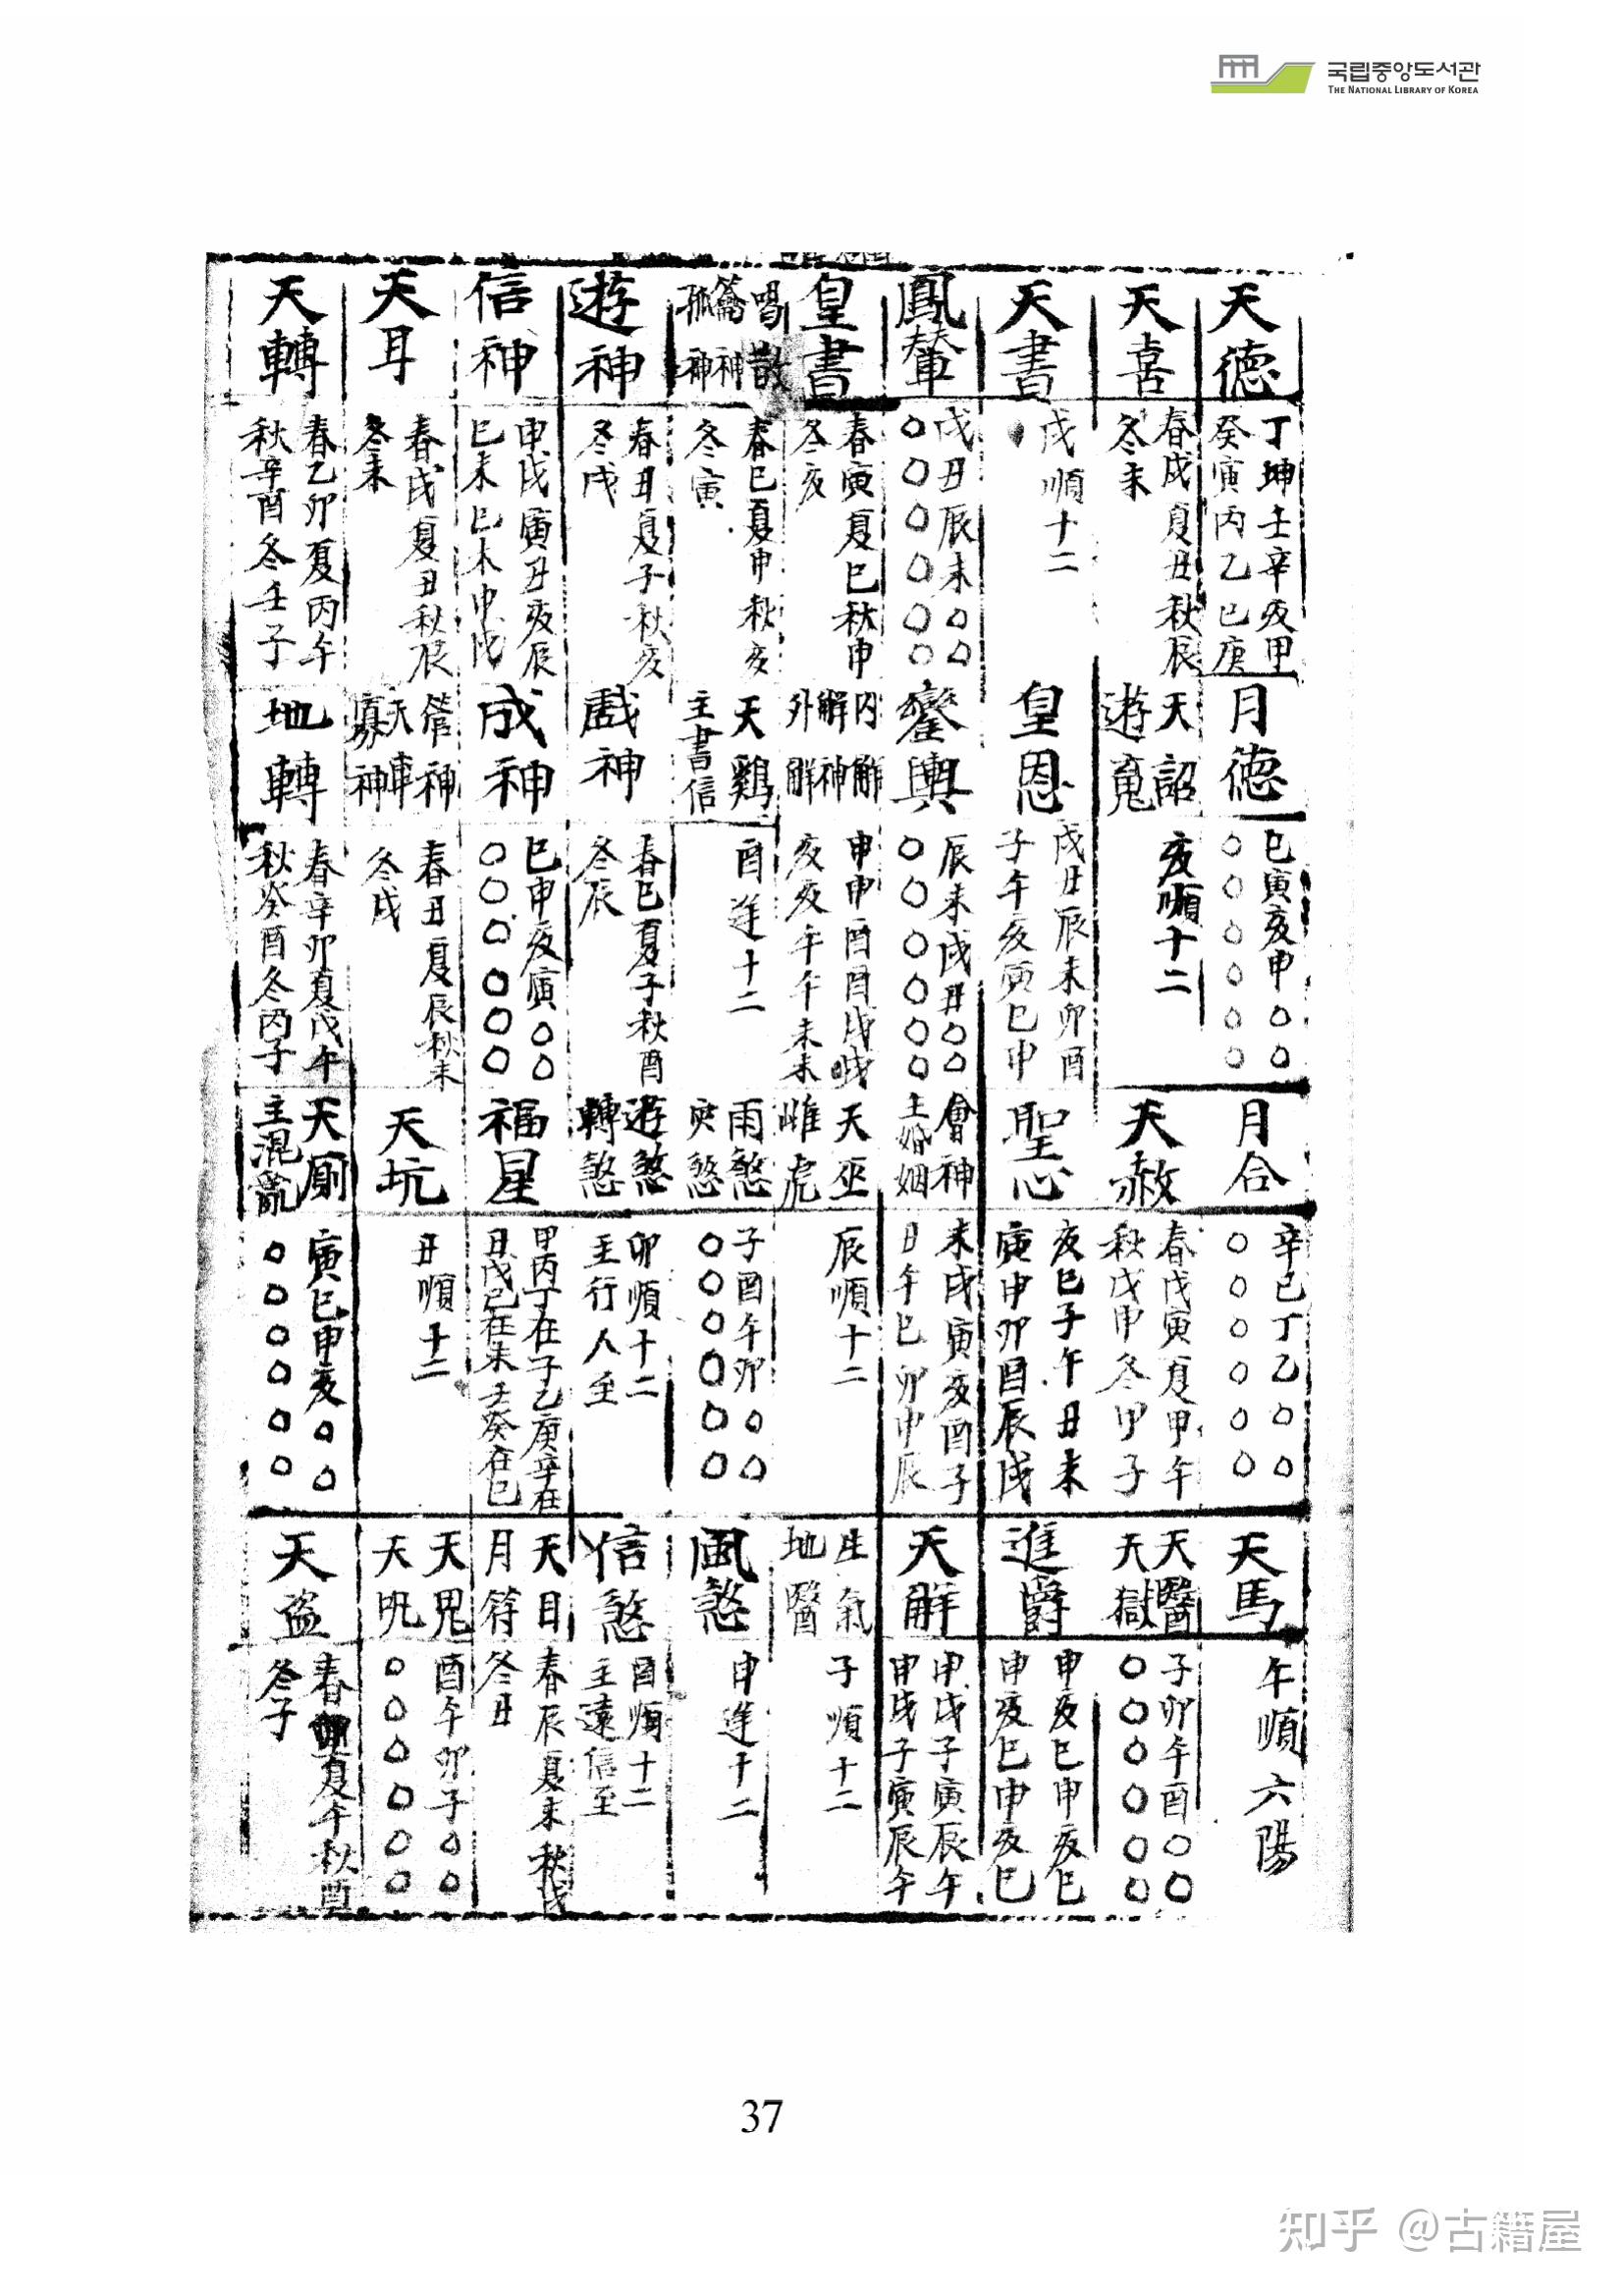 국립중앙도서관
THE NATIONAL LIBRARY OF KOREA
天德
丁坤壬辛亥甲
癸寅丙乙巳庚
月德
巳寅亥申〇〇
〇〇〇〇〇〇
月合
辛巳丁乙〇〇
〇〇〇〇〇〇
天馬
午順六陽
天喜
春戌夏丑秋辰
冬未
天詔
遊魂
亥順十二
天赦
春戊寅夏甲午
秋戊申冬甲子
天醫
天獄
子卯午酉〇〇
〇〇〇〇〇〇
天書
戌順十二
皇恩
戌丑辰未卯酉
子午亥寅巳申
聖心
亥巳子午丑未
寅申卯酉辰戌
進爵
申亥巳申亥巳
申亥巳申亥巳
鳳輦
戌丑辰未〇〇
〇〇〇〇〇〇
鑾輿
辰未戌丑〇〇
〇〇〇〇〇〇
會神
主婚姻
未戌寅亥酉子
丑午巳卯申辰
天解
申戌子寅辰午
申戌子寅辰午
皇書
春寅夏巳秋申
冬亥
內解
解神
外解
申申酉酉戌戌
亥亥午午未未
天巫
雌虎
辰順十二
生氣
地醫
子順十二
喝散
籥神
孤神
春巳夏申秋亥
冬寅
天鷄
主書信
酉逆十二
雨煞
子酉午卯〇〇
〇〇〇〇〇〇
風煞
申逆十二
遊神
春丑夏子秋亥
冬戌
戲神
春巳夏子秋酉
冬辰
遊煞
轉煞
卯順十二
主行人至
信煞
酉順十二
主遠信至
信神
申戌寅丑亥辰
巳未巳未申戌
成神
巳申亥寅〇〇
〇〇〇〇〇〇
福星
甲丙丁在子乙庚辛在
丑戊己在未壬癸在巳
天目
月符
春辰夏未秋戌
冬丑
天耳
春戌夏丑秋辰
冬未
管神
天車
寡神
春丑夏辰秋未
冬戌
天坑
丑順十二
天鬼
天咒
酉午卯子〇〇
〇〇〇〇〇〇
天轉
春乙卯夏丙午
秋辛酉冬壬子
地轉
春辛卯夏戊午
秋癸酉冬丙子
天廁
寅巳申亥〇〇
〇〇〇〇〇〇
天盜
春卯夏午秋酉
冬子
37
知乎 @古籍屋